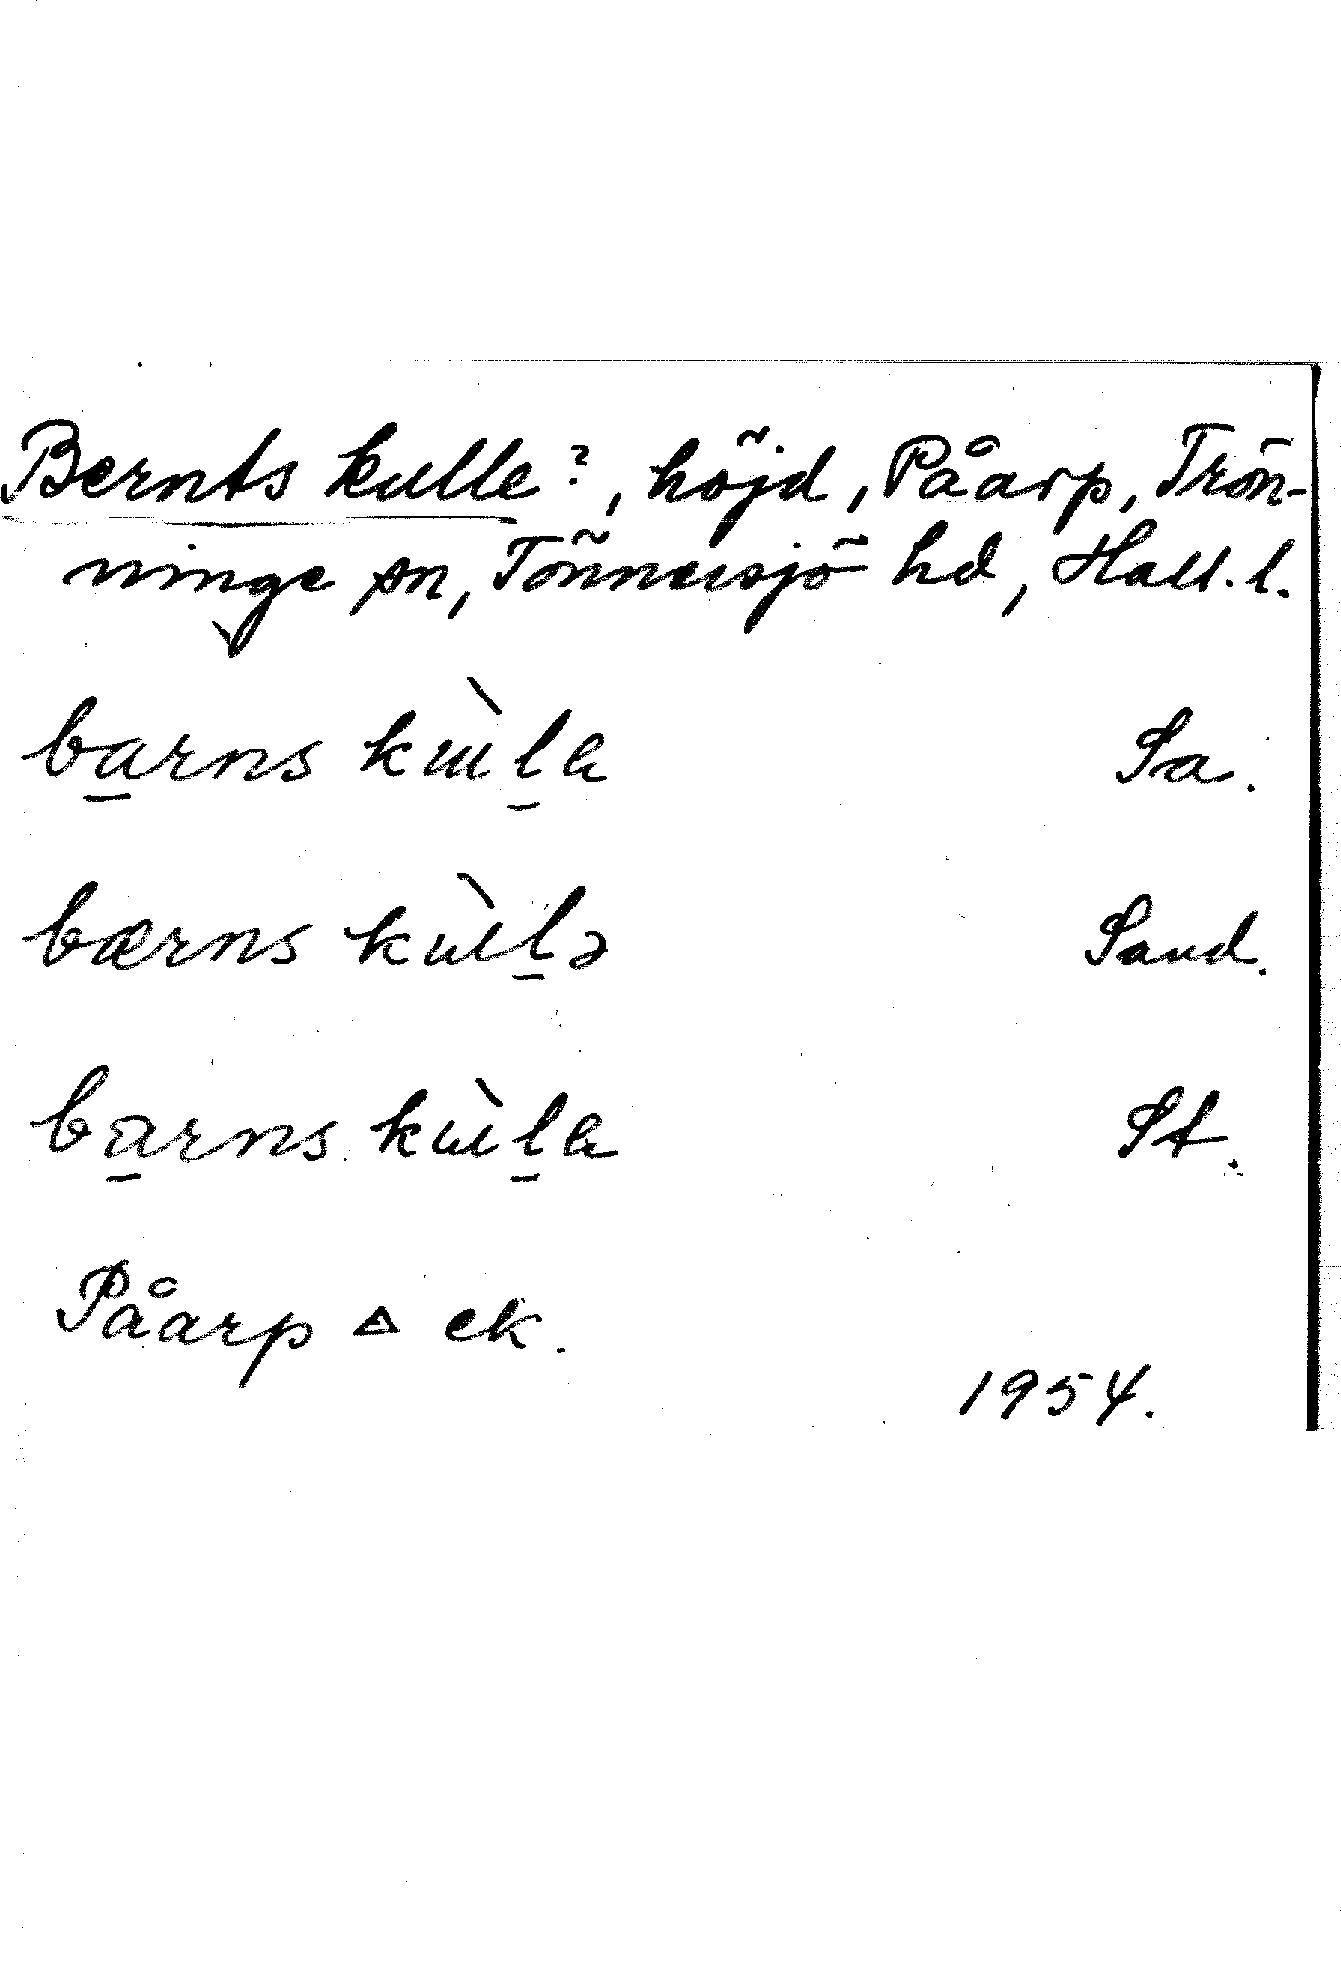 Bernts kulle?, höjd, Påarp, Trön-
ninge sn, Tönnersjö hd, Hall. l.
ba̱rns kɯ̀ḻa Sa.
bærns kɯ̀ḻə Sand.
ba̱rns kɯ̀ḻa St.
Påarp △ ek.
1954.